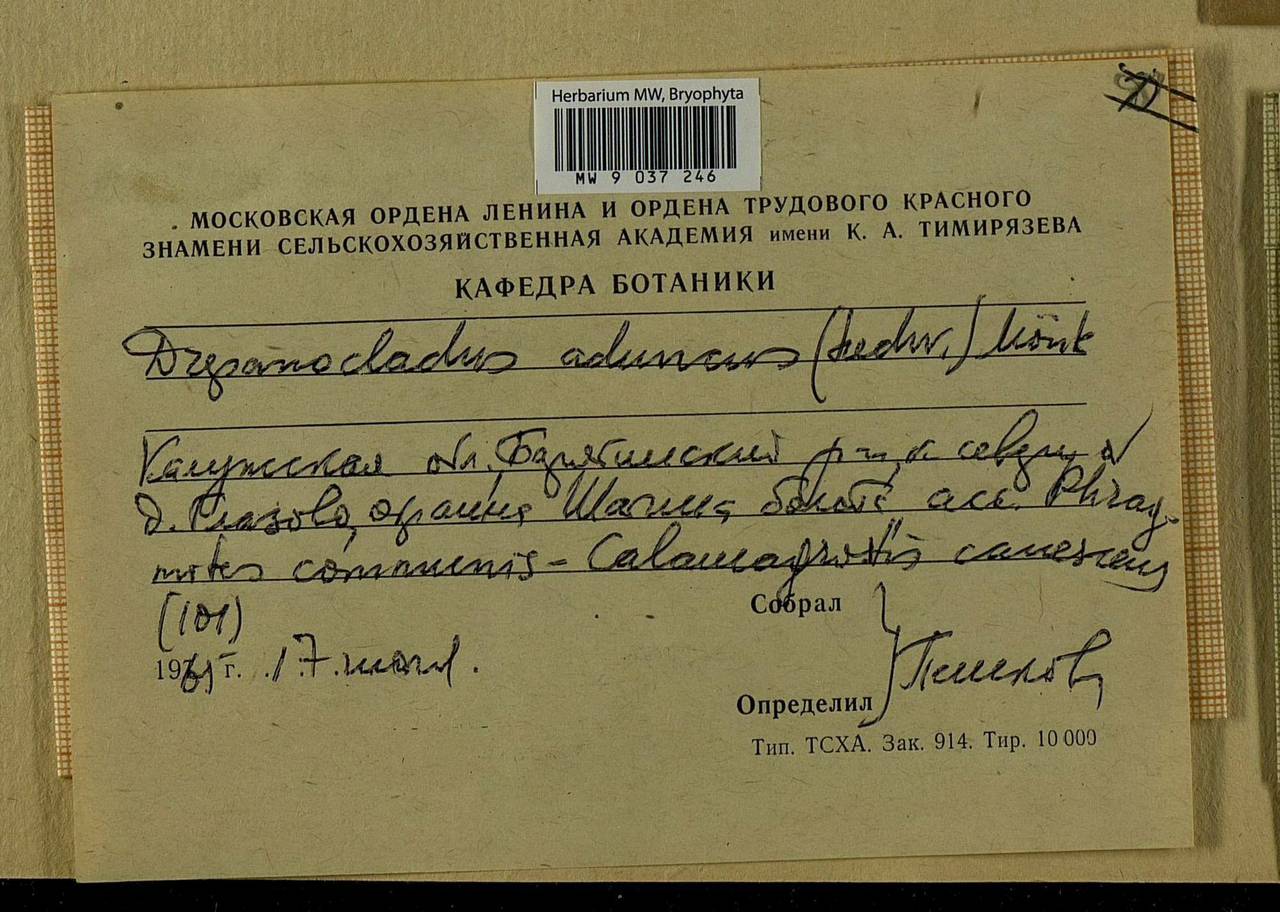 Herbarium MW, Bryophyta
MW 9 037 246
МОСКОВСКАЯ ОРДЕНА ЛЕНИНА И ОРДЕНА ТРУДОВОГО КРАСНОГО
ЗНАМЕНИ СЕЛЬСКОХОЗЯЙСТВЕННАЯ АКАДЕМИЯ имени К. А. ТИМИРЯЗЕВА
КАФЕДРА БОТАНИКИ
Drepanocladus aduncus (Hedw.) Mönk
Калужская обл. Барятинский р-н, к северу от
д. окраина болота acc. Phrag-
mites communis - Calamagrostis canescens
(101)
19 г. 17. июля.
Собрал
Определил
Тип. ТСХА. Зак. 914. Тир. 10 000